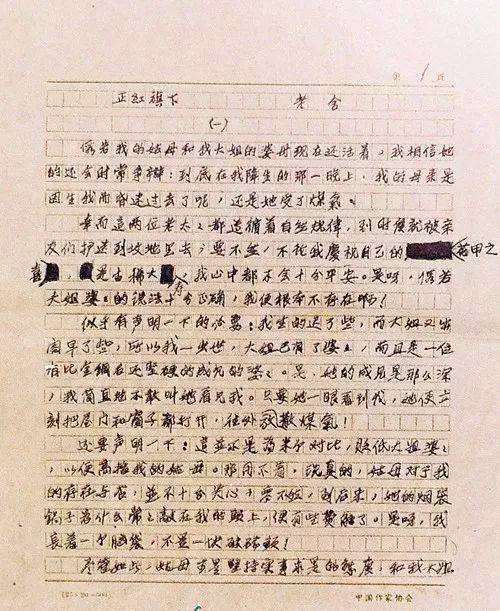 第 1 页
正红旗下 老舍
(一)
假若我的姑母和我大姐的婆母现在还活着,我相信她
们还会时常争辩:到底在我降生的那一晚上,我的母亲是
因生我而昏迷过去了呢,还是她受了煤气。
幸而這两位老太々都遵循着自然规律,到时候就被亲
友们护送到坟地里去;要不然,不论我庆祝自己的花甲之
喜,是古稀大寿,我心中都不会十分平安。是呀,假若
大姐婆々的说法十分正确,我便根本不存在啊!
似乎有声明一下的必要:我生的迟了些,而大姐又出
阁早了些,所以我一出世,大姐已有了婆々,而且是一位
有比金钢石还坚硬的成见的婆々。是,她的成见是那么深,
我简直地不敢叫她看见我。只要她一眼看到我,她便立
刻把屋门和窗子都打开,往外放散煤气!
还要声明一下:這並不是为来个对比,贬低大姐婆々
,以便高抬我的姑母。那用不着。说真的,姑母对于我
的存在与否,並不十分关心;要不然,到后来,她的烟袋
锅子为什么常々敲在我的头上,便有些费解了。是呀,我
长着一个脑袋,不是一块破砖头!
尽管如此,姑母可是坚持实事求是的态度,和我大姐
中国作家协会